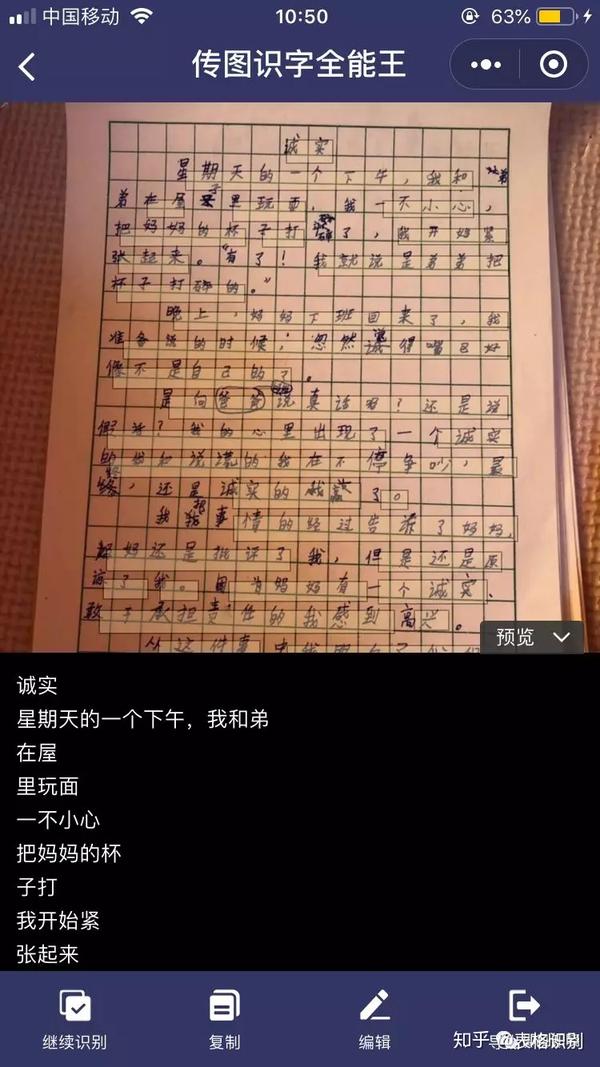 中国移动
10:50
63%
传图识字全能王
诚实
星期天的一个下午，我和弟
弟在屋子里玩耍，我一不小心，
把妈妈的杯子打碎了，我开始紧
张起来。“有了！我就说是弟弟把
杯子打碎的。”
晚上，妈妈下班回来了，我
准备说的时候，忽然觉得嘴巴好
像不是自己的了。
是向爸爸说真话呢？还是说
假话？我的心里出现了一个诚实
的我和说谎的我在不停争吵，最
终，还是诚实的我赢了。
我把事情的经过告诉了妈妈，
妈妈还是批评了我，但是还是原
谅了我。因为妈妈有一个诚实、
敢于承担责任的我感到高兴。
从这件事中我明白了
预览
诚实
星期天的一个下午，我和弟
在屋
里玩面
一不小心
把妈妈的杯
子打
我开始紧
张起来
继续识别
复制
编辑
知乎 @表格识别